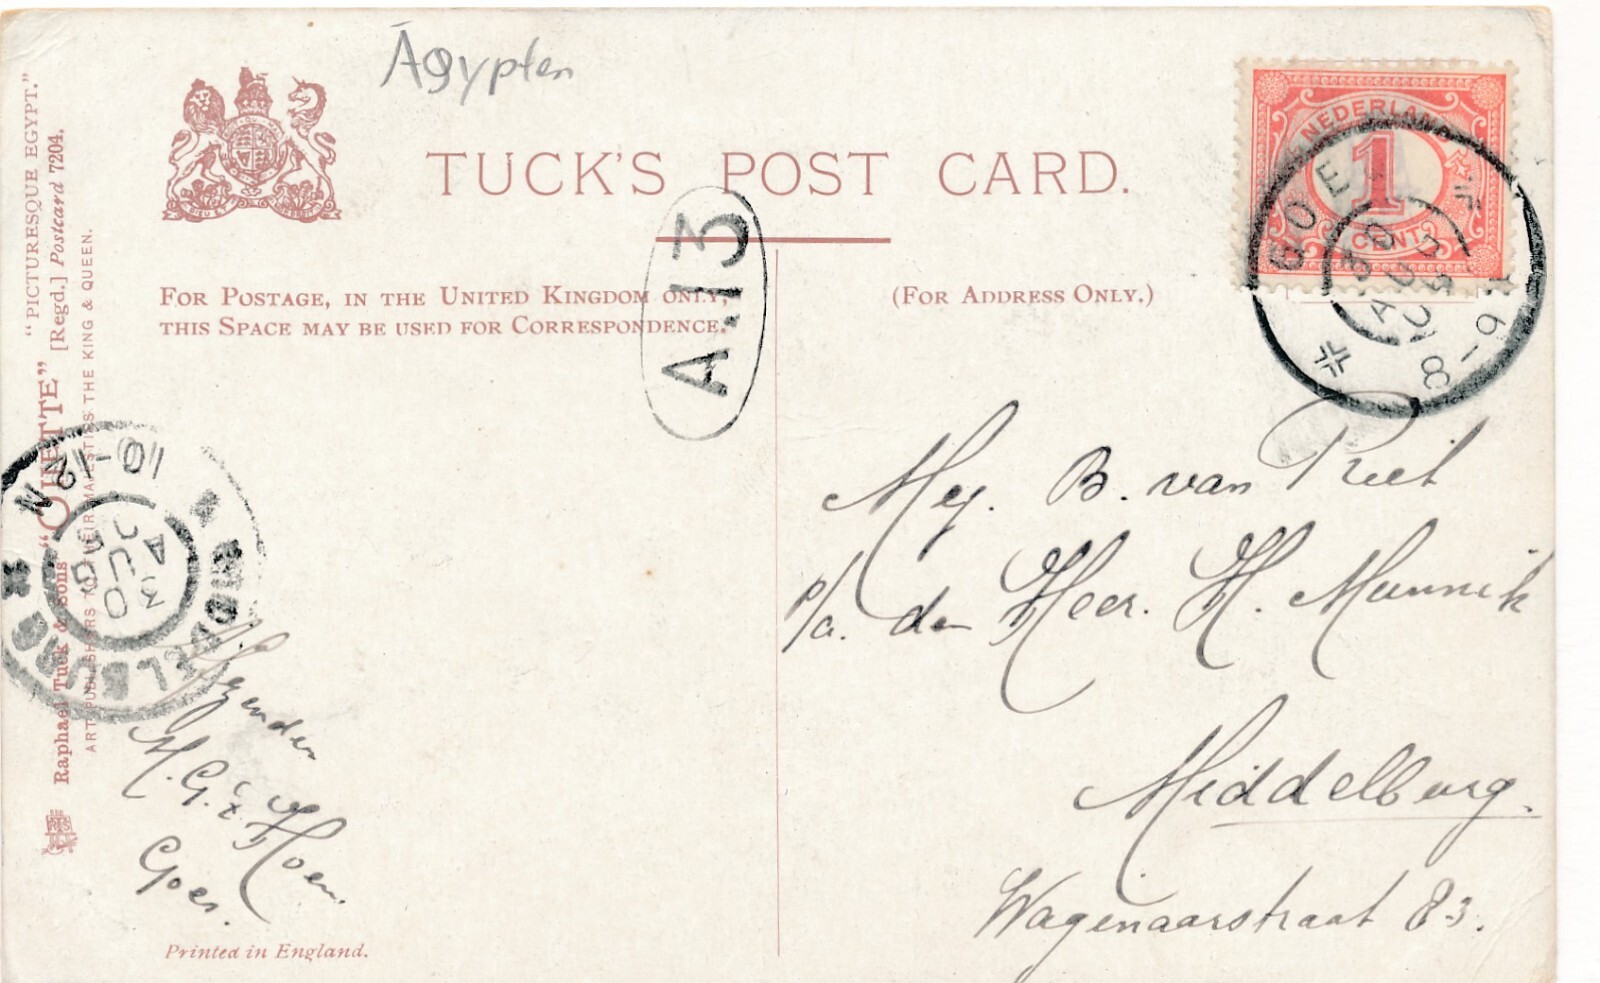 Ägypten
TUCK'S POST CARD.
FOR POSTAGE, IN THE UNITED KINGDOM ONLY,
THIS SPACE MAY BE USED FOR CORRESPONDENCE.
(FOR ADDRESS ONLY.)
A.13
NEDERLAND
1
CENT
GOES
30
AUG
8-9V
DIEU ET
"PICTURESQUE EGYPT."
"OILETTE" [Regd.] Postcard 7204.
Raphael Tuck & Sons
ART PUBLISHERS TO THEIR MAJESTIES THE KING & QUEEN.
MIDDELBURG
30
AUG
10-12N
Mej. B. van Riet
p/a. den Heer. H. Munnik
Middelburg.
Wagenaarstraat 83.
Afzender
Goes.
Printed in England.